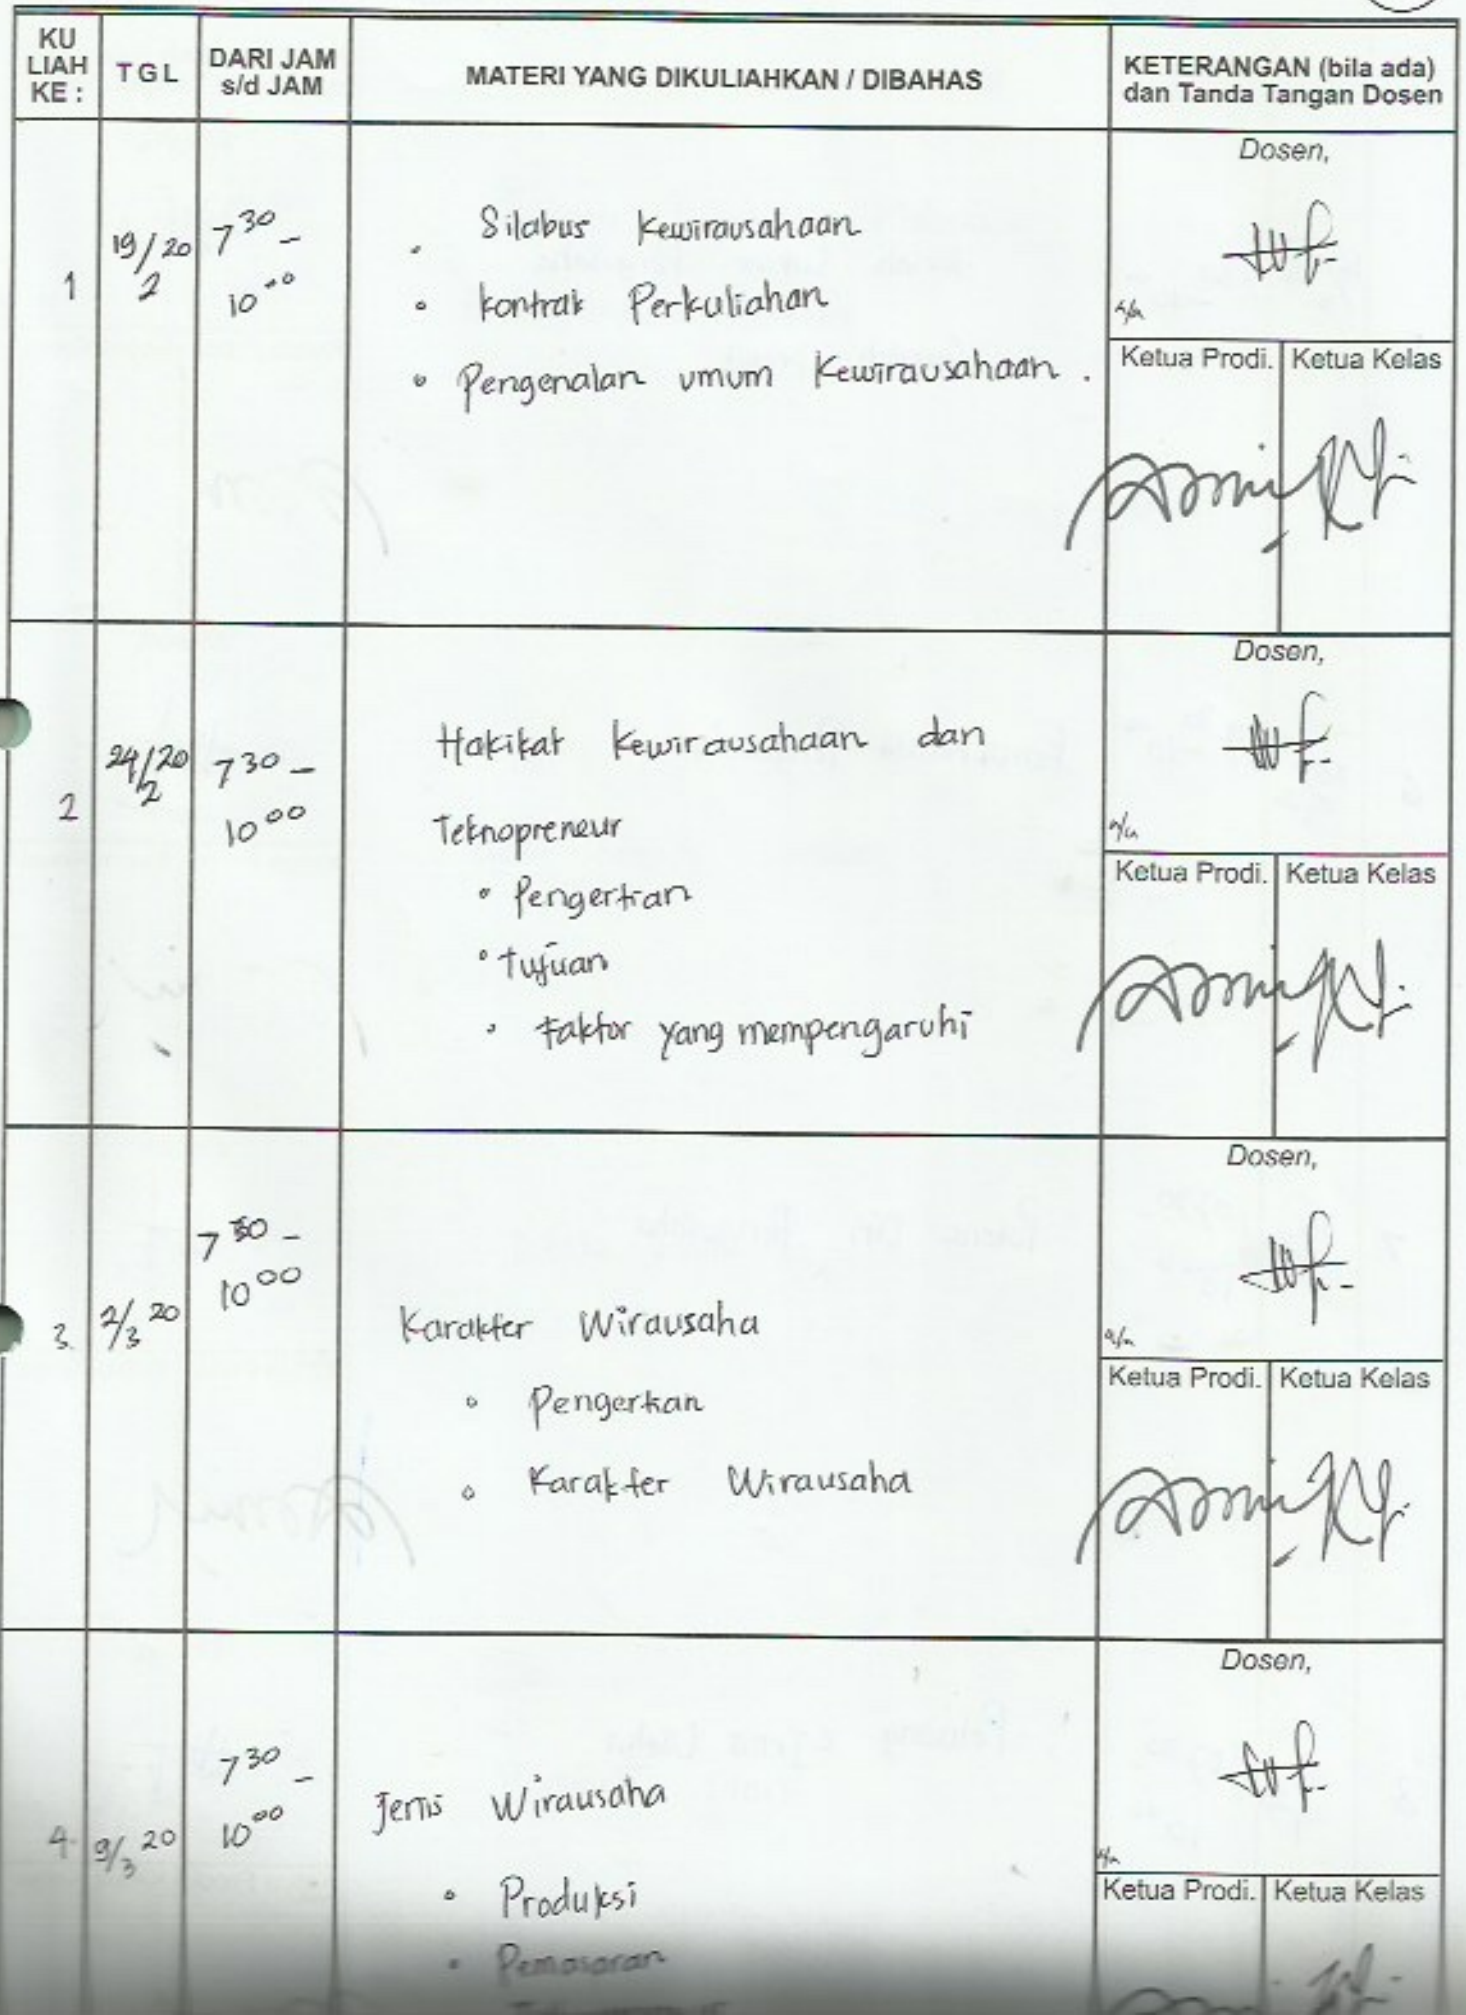 KU LIAH KE :
TGL
DARI JAM s/d JAM
MATERI YANG DIKULIAHKAN / DIBAHAS
KETERANGAN (bila ada) dan Tanda Tangan Dosen
1
19/2 20
7 30 -
10 00
• Silabus Kewirausahaan
• kontrak Perkuliahan
• Pengenalan umum Kewirausahaan.
Dosen,
Ketua Prodi. Ketua Kelas
2
24/2 20
7 30 -
10 00
Hakikat Kewirausahaan dan
Teknopreneur
• Pengertian
• tujuan
• faktor yang mempengaruhi
Dosen,
Ketua Prodi. Ketua Kelas
3.
2/3 20
7 30 -
10 00
Karakter Wirausaha
• Pengertian
• Karakter Wirausaha
Dosen,
Ketua Prodi. Ketua Kelas
4.
9/3 20
7 30 -
10 00
Jenis Wirausaha
• Produksi
• Pemasaran
Dosen,
Ketua Prodi. Ketua Kelas